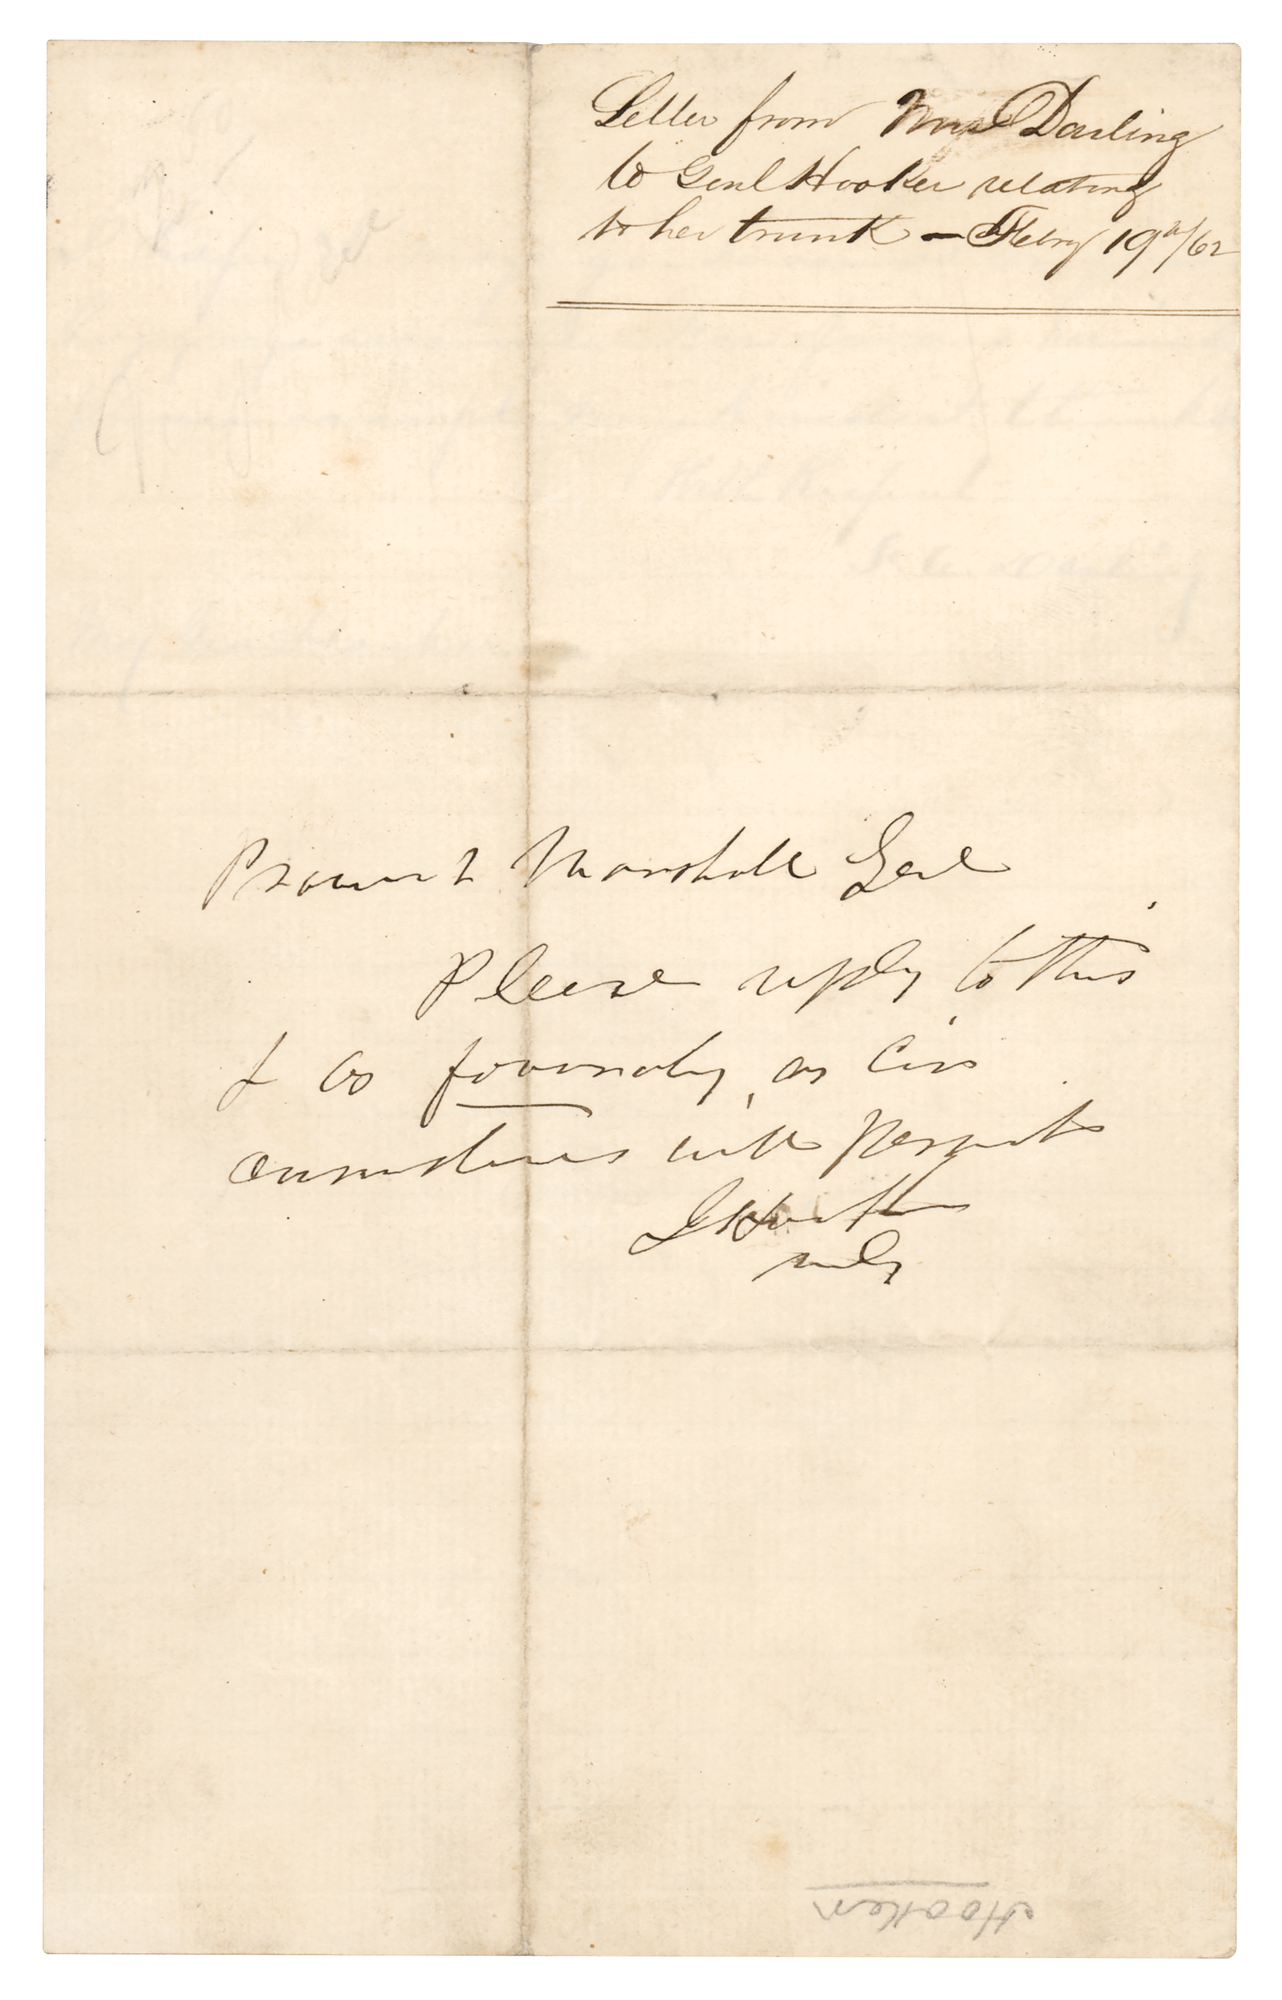 Letter from Mrs Darling
to Genl Hooker relating
to her trunk — Feby 19th/62
Provost Marshall Genl
Please reply to this
& as favorably, as cir
cumstances will permit
Hooker